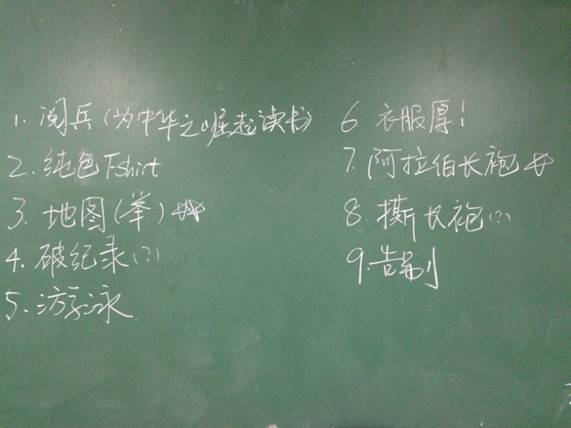 1. 阅兵(为中华之崛起读书)
2. 纯色Tshirt
3. 地图(举)
4. 破纪录(?)
5. 游泳
6 衣服厚!
7. 阿拉伯长袍
8. 撕长袍(?)
9. 告别